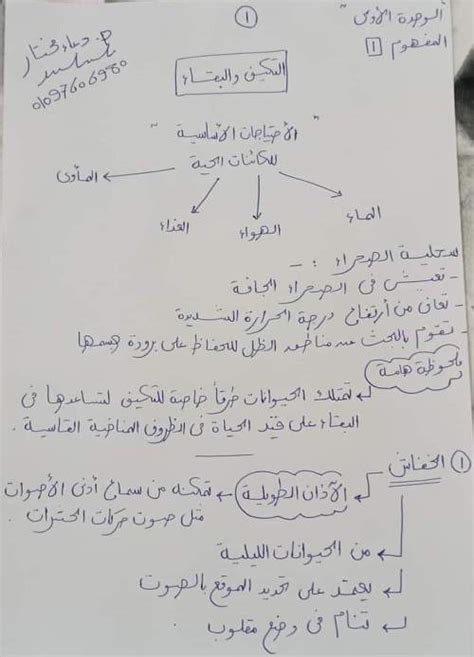 ①
"الوحدة الأولى"
المفهوم 1
م. دعاء مختار
01097606980
التكيف والبقاء
"الأحتياجات الأساسية"
للكائنات الحية
المأوى
الغذاء
الهواء
الماء
سحلية الصحراء : -
- تعيش فى الصحراء الجافة
- تعانى من أرتفاع درجة الحرارة الشديدة
- تقوم بالبحث عن مناطق الظل للحفاظ على برودة جسمها
ملحوظة هامة
تمتلك الحيوانات طرقاً خاصة للتكيف لتساعدها فى
البقاء على قيد الحياة فى الظروف المناخية القاسية .
① الخفاش
الآذان الطويلة ← تمكنه من سماع أدنى الأصوات
مثل صوت حركات الحشرات .
من الحيوانات الليلية
يعتمد على تحديد الموقع بالصوت
تنام فى وضع مقلوب .